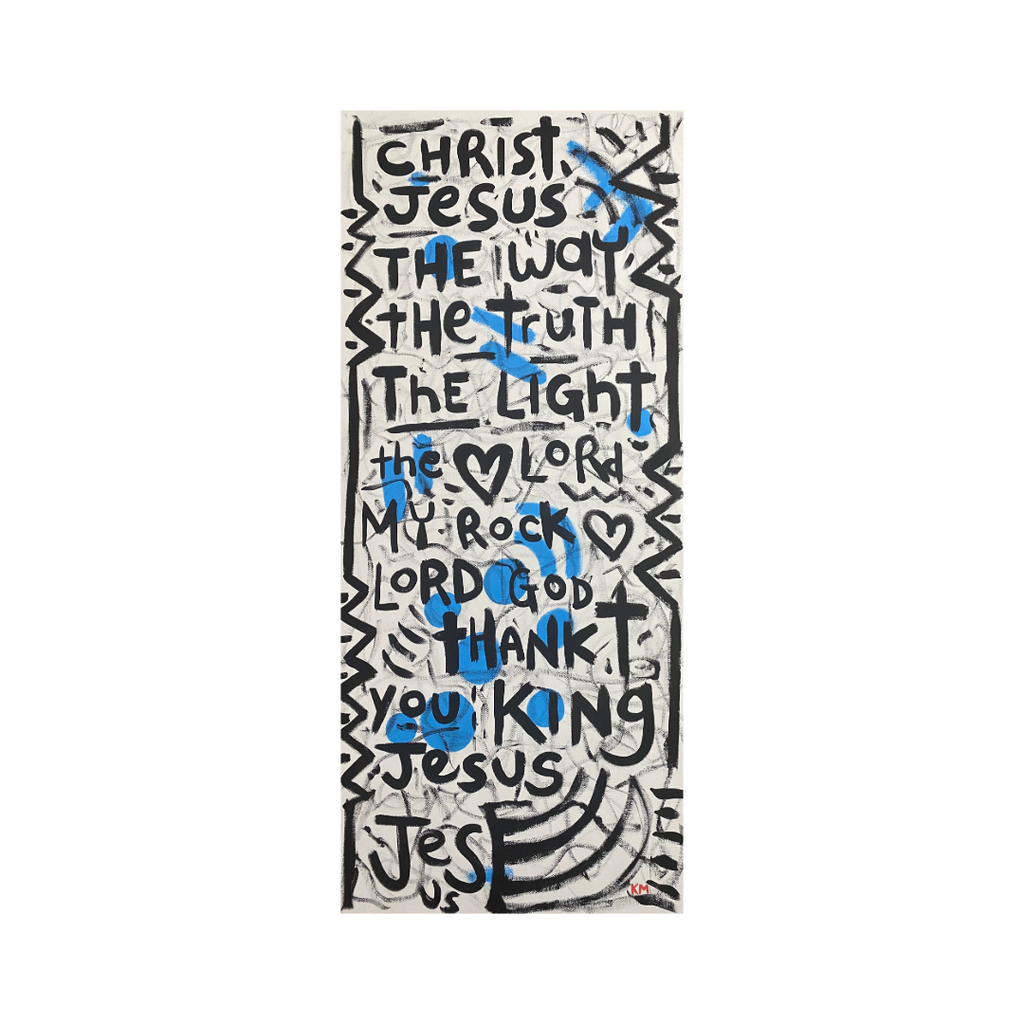 CHRIST
JesuS
THE WaY
tHe TruTH
ThE LIGhT
the LORd
MY ROCK
LORD GOD
tHANK
you KINg
Jesus
JeS
us
KM